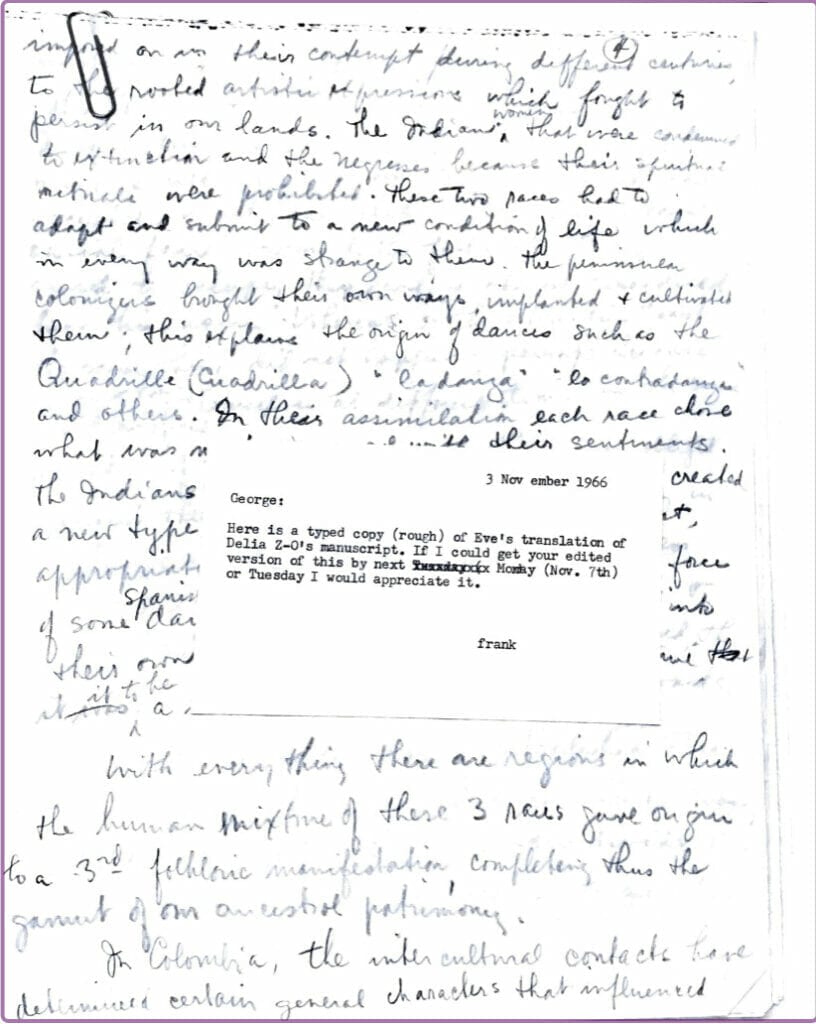 4
imposed on us their contempt during different centuries,
to the rooted artistic expressions which fought to
women
persist in our lands. The Indian ^ that were condemned
to extinction and the negresses because their spiritual
were prohibited. These two races had to
adapt and submit to a new condition of life which
in every way was strange to them. The peninsular
colonizers brought their own ways, implanted & cultivated
them; this explains the origin of dances such as the
Quadrille (Cuadrilla) "la danza" "la contradanza"
and others. In their assimilation each race chose
what was their sentiments.
the Indians created
a new type
appropriate force
Spanis
of some dan into
their own
it to be
it was ^ a
3 Nov ember 1966
George:
Here is a typed copy (rough) of Eve's translation of
Delia Z-O's manuscript. If I could get your edited
version of this by next Monday (Nov. 7th)
or Tuesday I would appreciate it.
frank
With everything there are regions in which
the human mixture of these 3 races gave origin
to a 3rd folkloric manifestation, completing thus the
gamut of our ancestral patrimony.
In Colombia, the intercultural contacts have
determined certain general characters that influenced